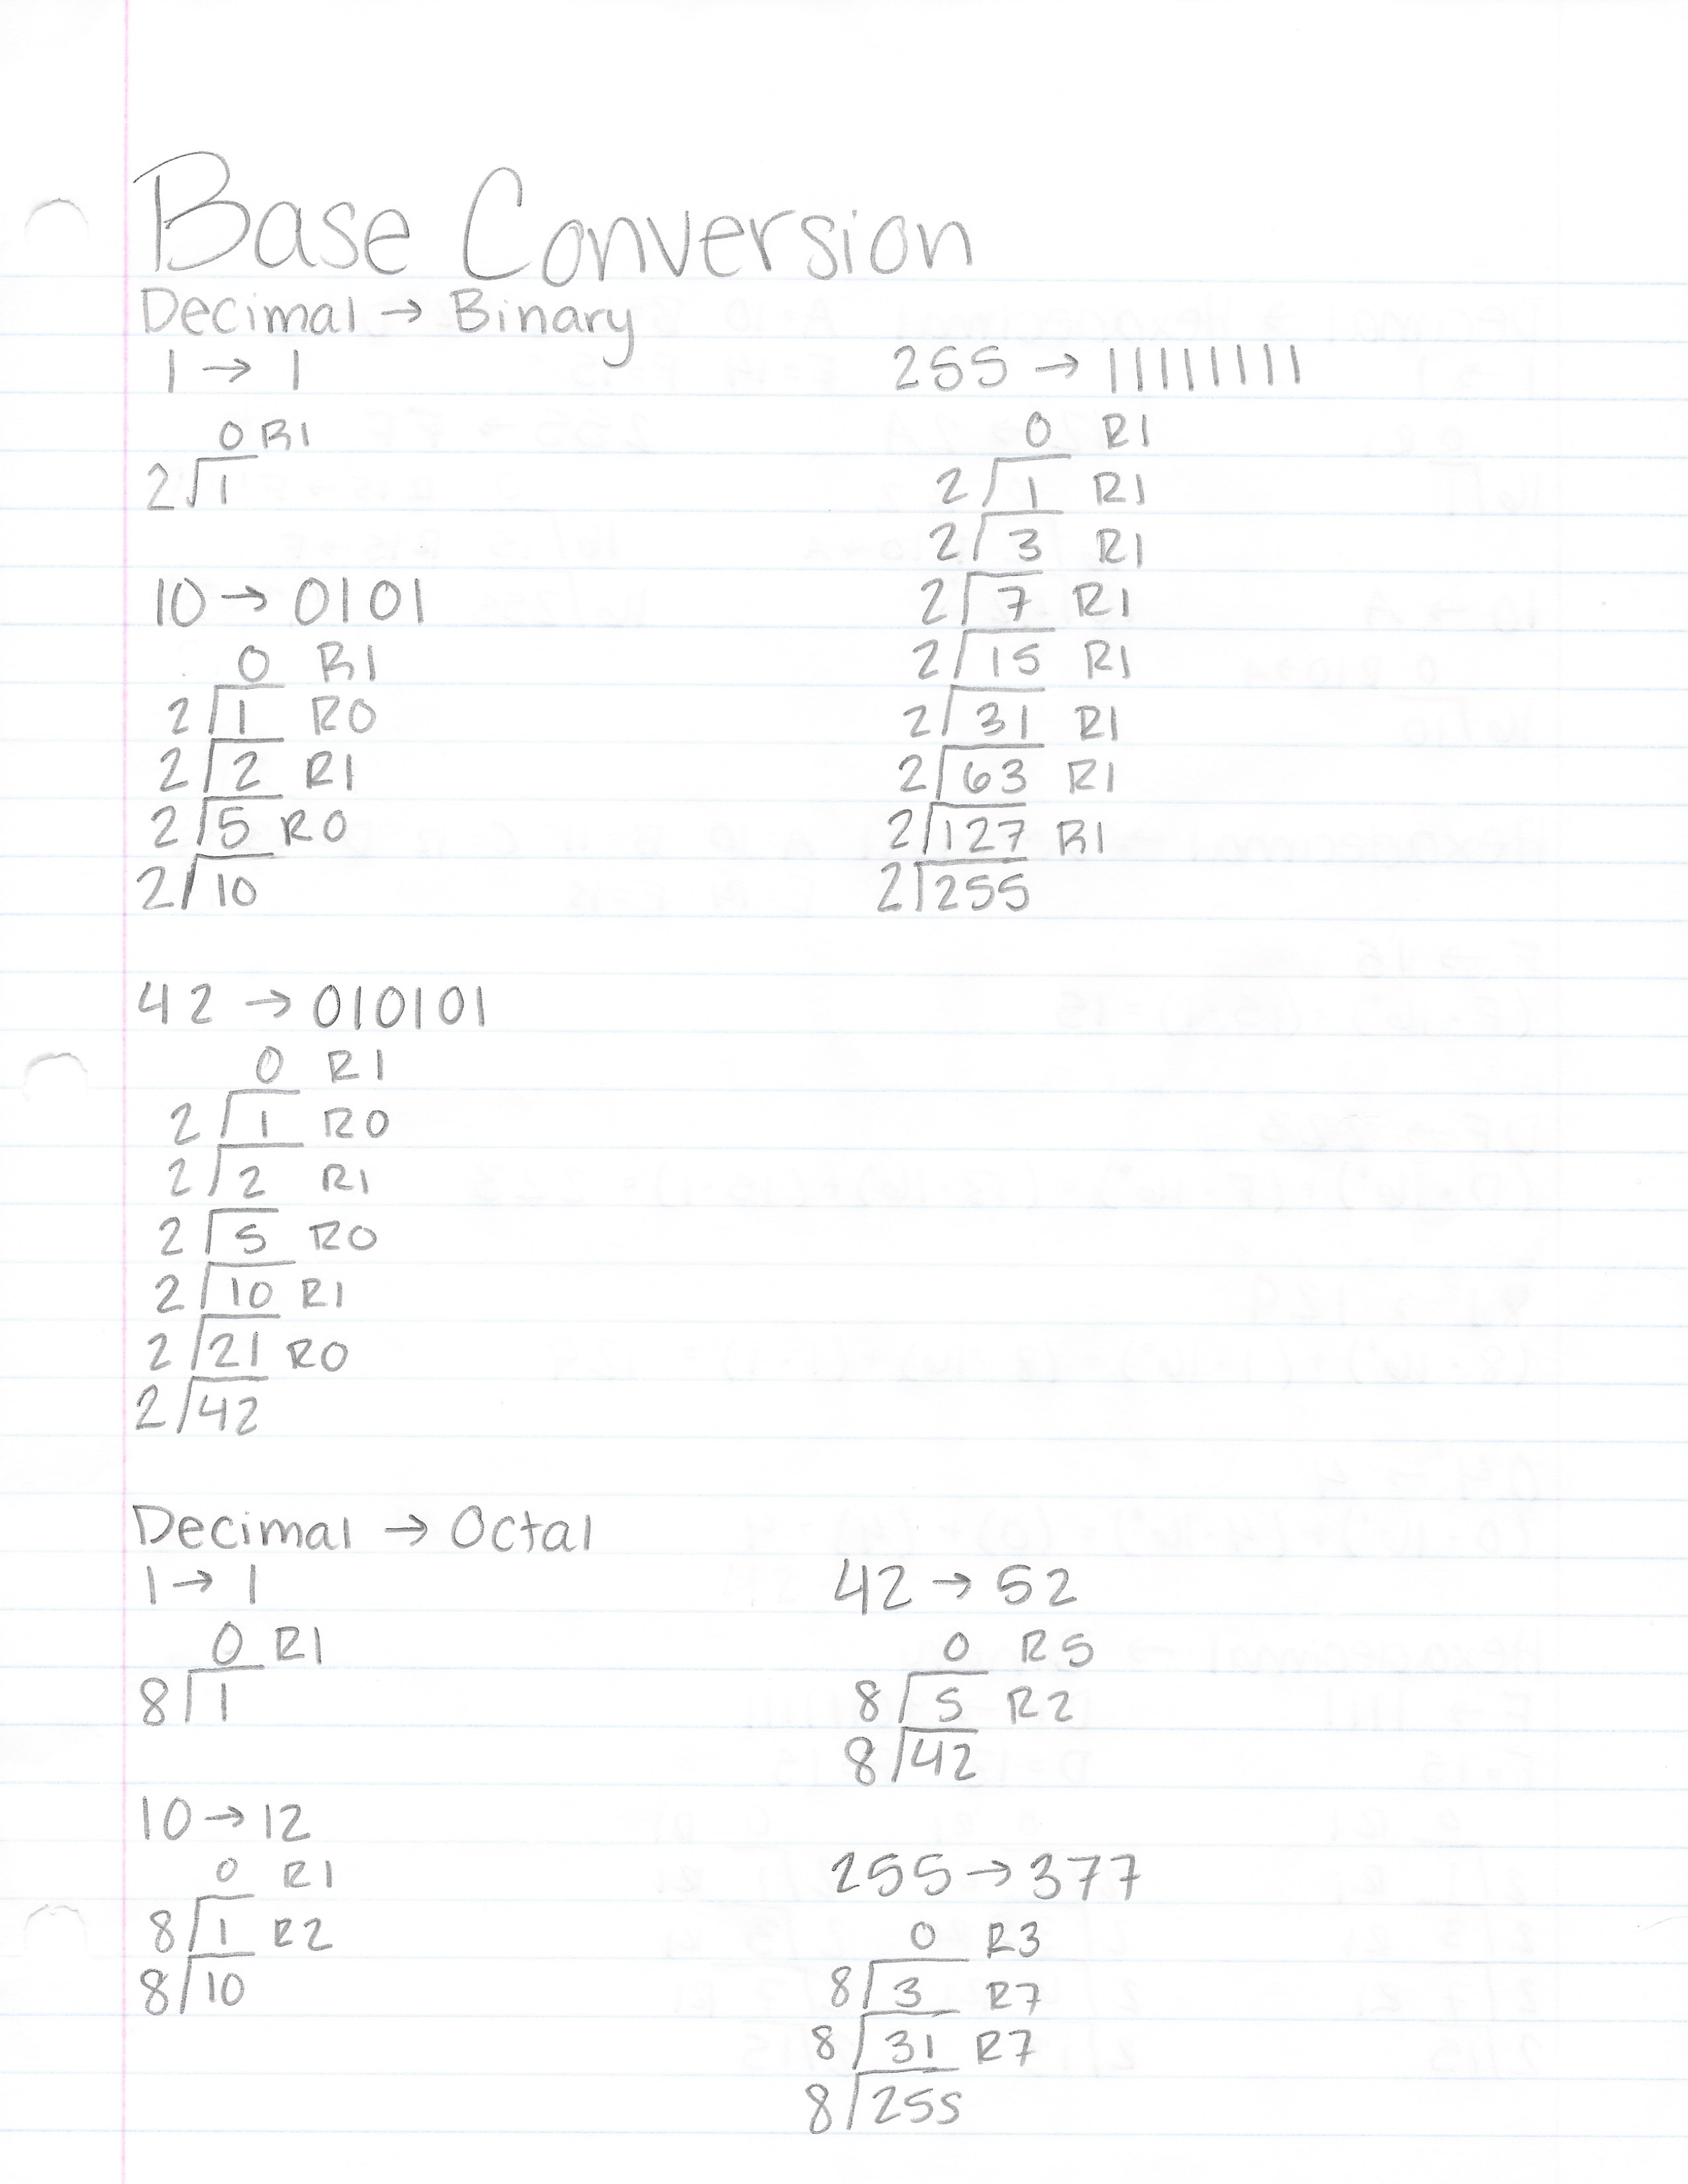 Base Conversion
Decimal → Binary
1 → 1
0 R1
2√1
10 → 0101
0 R1
2√1 R0
2√2 R1
2√5 R0
2√10
42 → 010101
0 R1
2√1 R0
2√2 R1
2√5 R0
2√10 R1
2√21 R0
2√42
255 → 11111111
0 R1
2√1 R1
2√3 R1
2√7 R1
2√15 R1
2√31 R1
2√63 R1
2√127 R1
2√255
Decimal → Octal
1 → 1
0 R1
8√1
10 → 12
0 R1
8√1 R2
8√10
42 → 52
0 R5
8√5 R2
8√42
255 → 377
0 R3
8√3 R7
8√31 R7
8√255